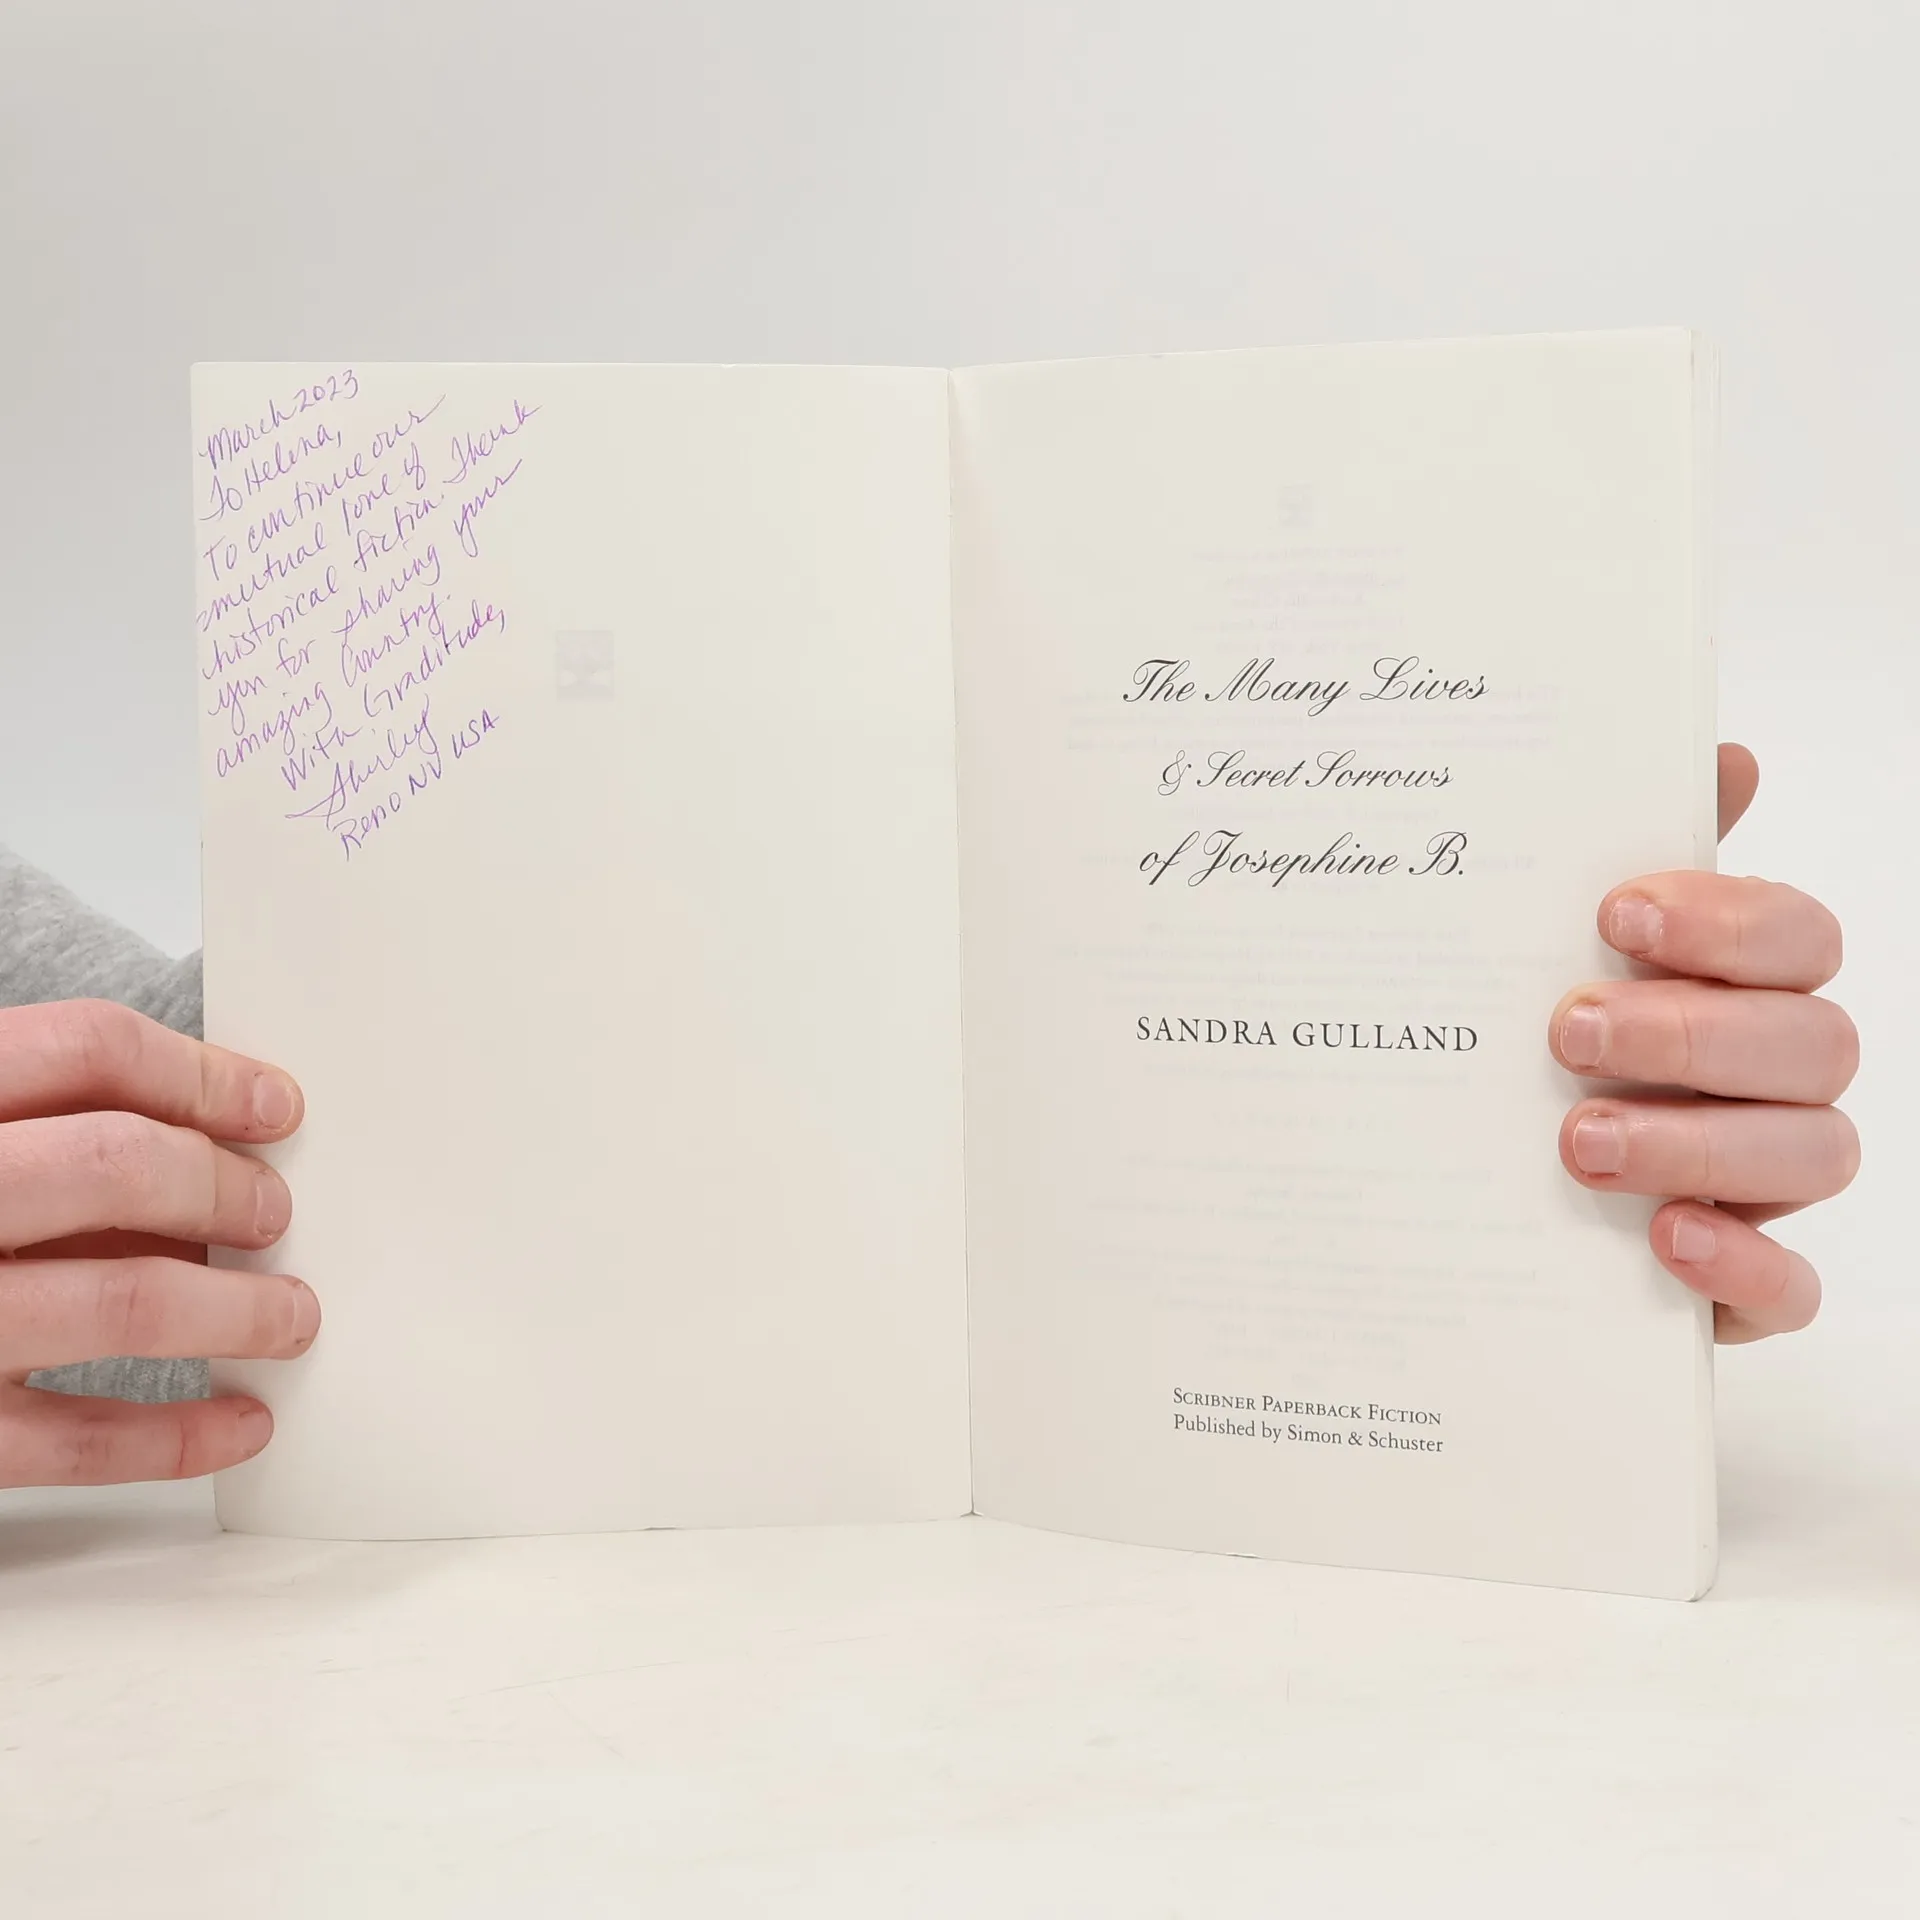 March 2023
To Helena,
To continue our
mutual love of
historical fiction. Thank
you for sharing your
amazing Country.
With Graditude,
Shirley
Reno NV USA
The Many Lives
& Secret Sorrows
of Josephine B.
SANDRA GULLAND
SCRIBNER PAPERBACK FICTION
Published by Simon & Schuster